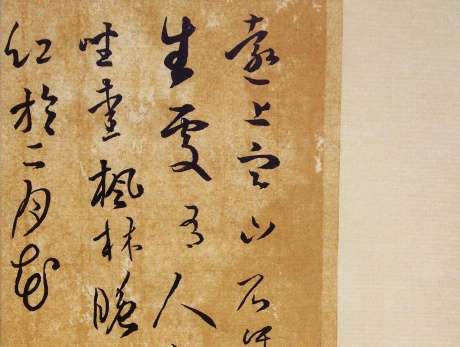 遠上寒山石
生處有人
坐愛楓林晚
紅於二月花